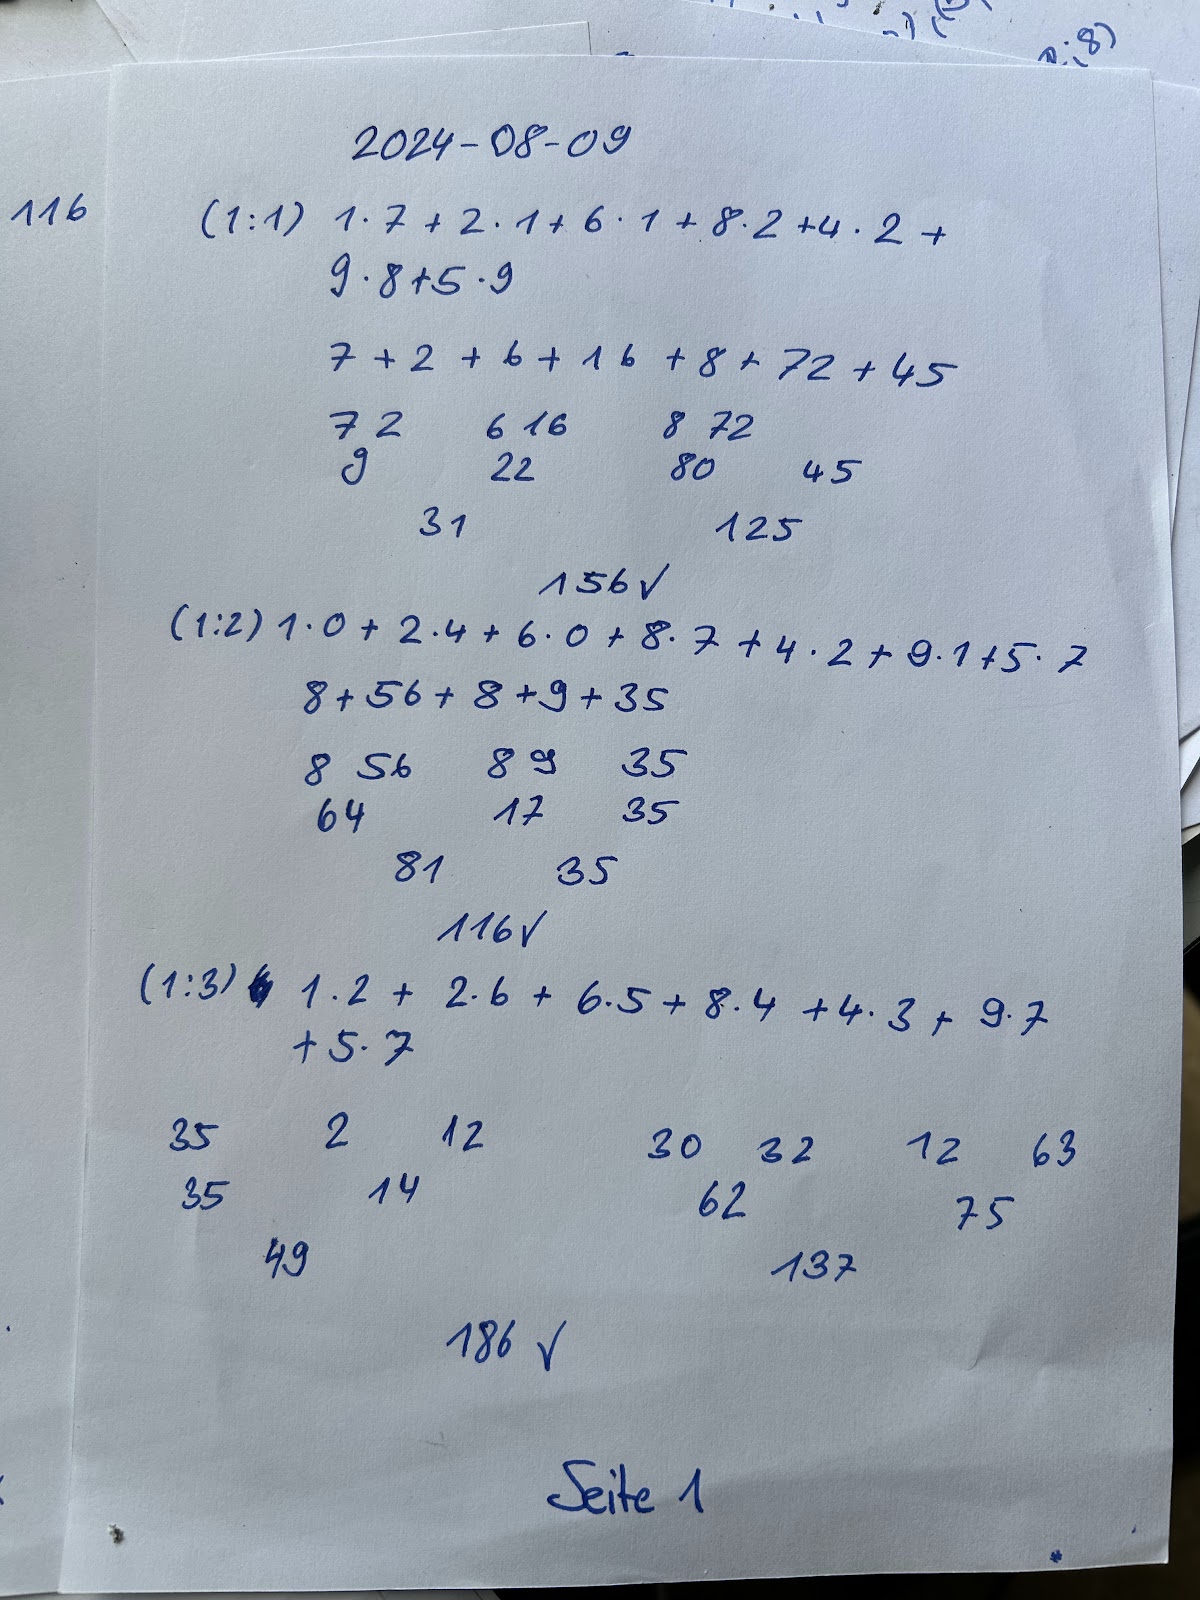 2024-08-09
116
(1:1) 1·7 + 2·1 + 6·1 + 8·2 + 4·2 +
9·8+5·9
7 + 2 + 6 + 16 + 8 + 72 + 45
7 2 6 16 8 72
9 22 80 45
31 125
156√
(1:2) 1·0 + 2·4 + 6·0 + 8·7 + 4·2 + 9·1 + 5·7
8 + 56 + 8 + 9 + 35
8 56 8 9 35
64 17 35
81 35
116√
(1:3) 1·2 + 2·6 + 6·5 + 8·4 + 4·3 + 9·7
+ 5·7
35 2 12 30 32 12 63
35 14 62 75
49 137
186 √
Seite 1